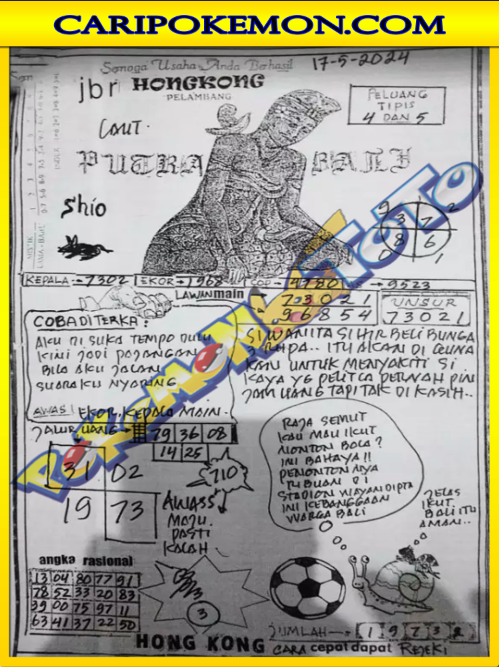 CARIPOKEMON.COM
Semoga Usaha Anda Berhasil
17-5-2024
jbr HONGKONG
PELAMBANG
PELUANG
TIPIS
4 DAN 5
LAUT.
PUTRA BALI
Shio
9 2
3 7
8 6
0 1
POKEMON TOTO
KEPALA → 7302
EKOR → 1968
4780
9523
LAWAN main
73021
96854
UNSUR
73021
COBA DITERKA:
AKU DI SUKA TEMPO DULU
KINI JODI PAJANGAN
BILA AKU JALAN
SUARAKU NYARING
AWAS! EKOR. KEPALA MAIN.
SI WANITA SIHIR BELI BUNGA
ITU AKAN DI GUNA
KAN UNTUK MENYAKITI SI
KAYA YG PELIT
JAM UANG TAPI TAK DI KASIH..
JALUR UANG →
79 36 08
14 25
31 02
19 73
710
AWASS
MAJU.
PASTI
KALAH
RAJA SEMUT
KAU MAU IKUT
NONTON BOLA?
INI BAHAYA!!
PENONTON NYA
RIBUAN DI
STADION WAYAN DIPTA
INI KEBANGGAAN
WARGA BALI
JELAS
IKUT.
BALI ITU
AMAN..
angka rasional
13 04 80 77 91
78 52 33 20 83
39 00 75 97 11
63 41 37 22 50
3
HONG KONG
JUMLAH → 1 9 7 3 2
CARA cepat dapat REJEKI